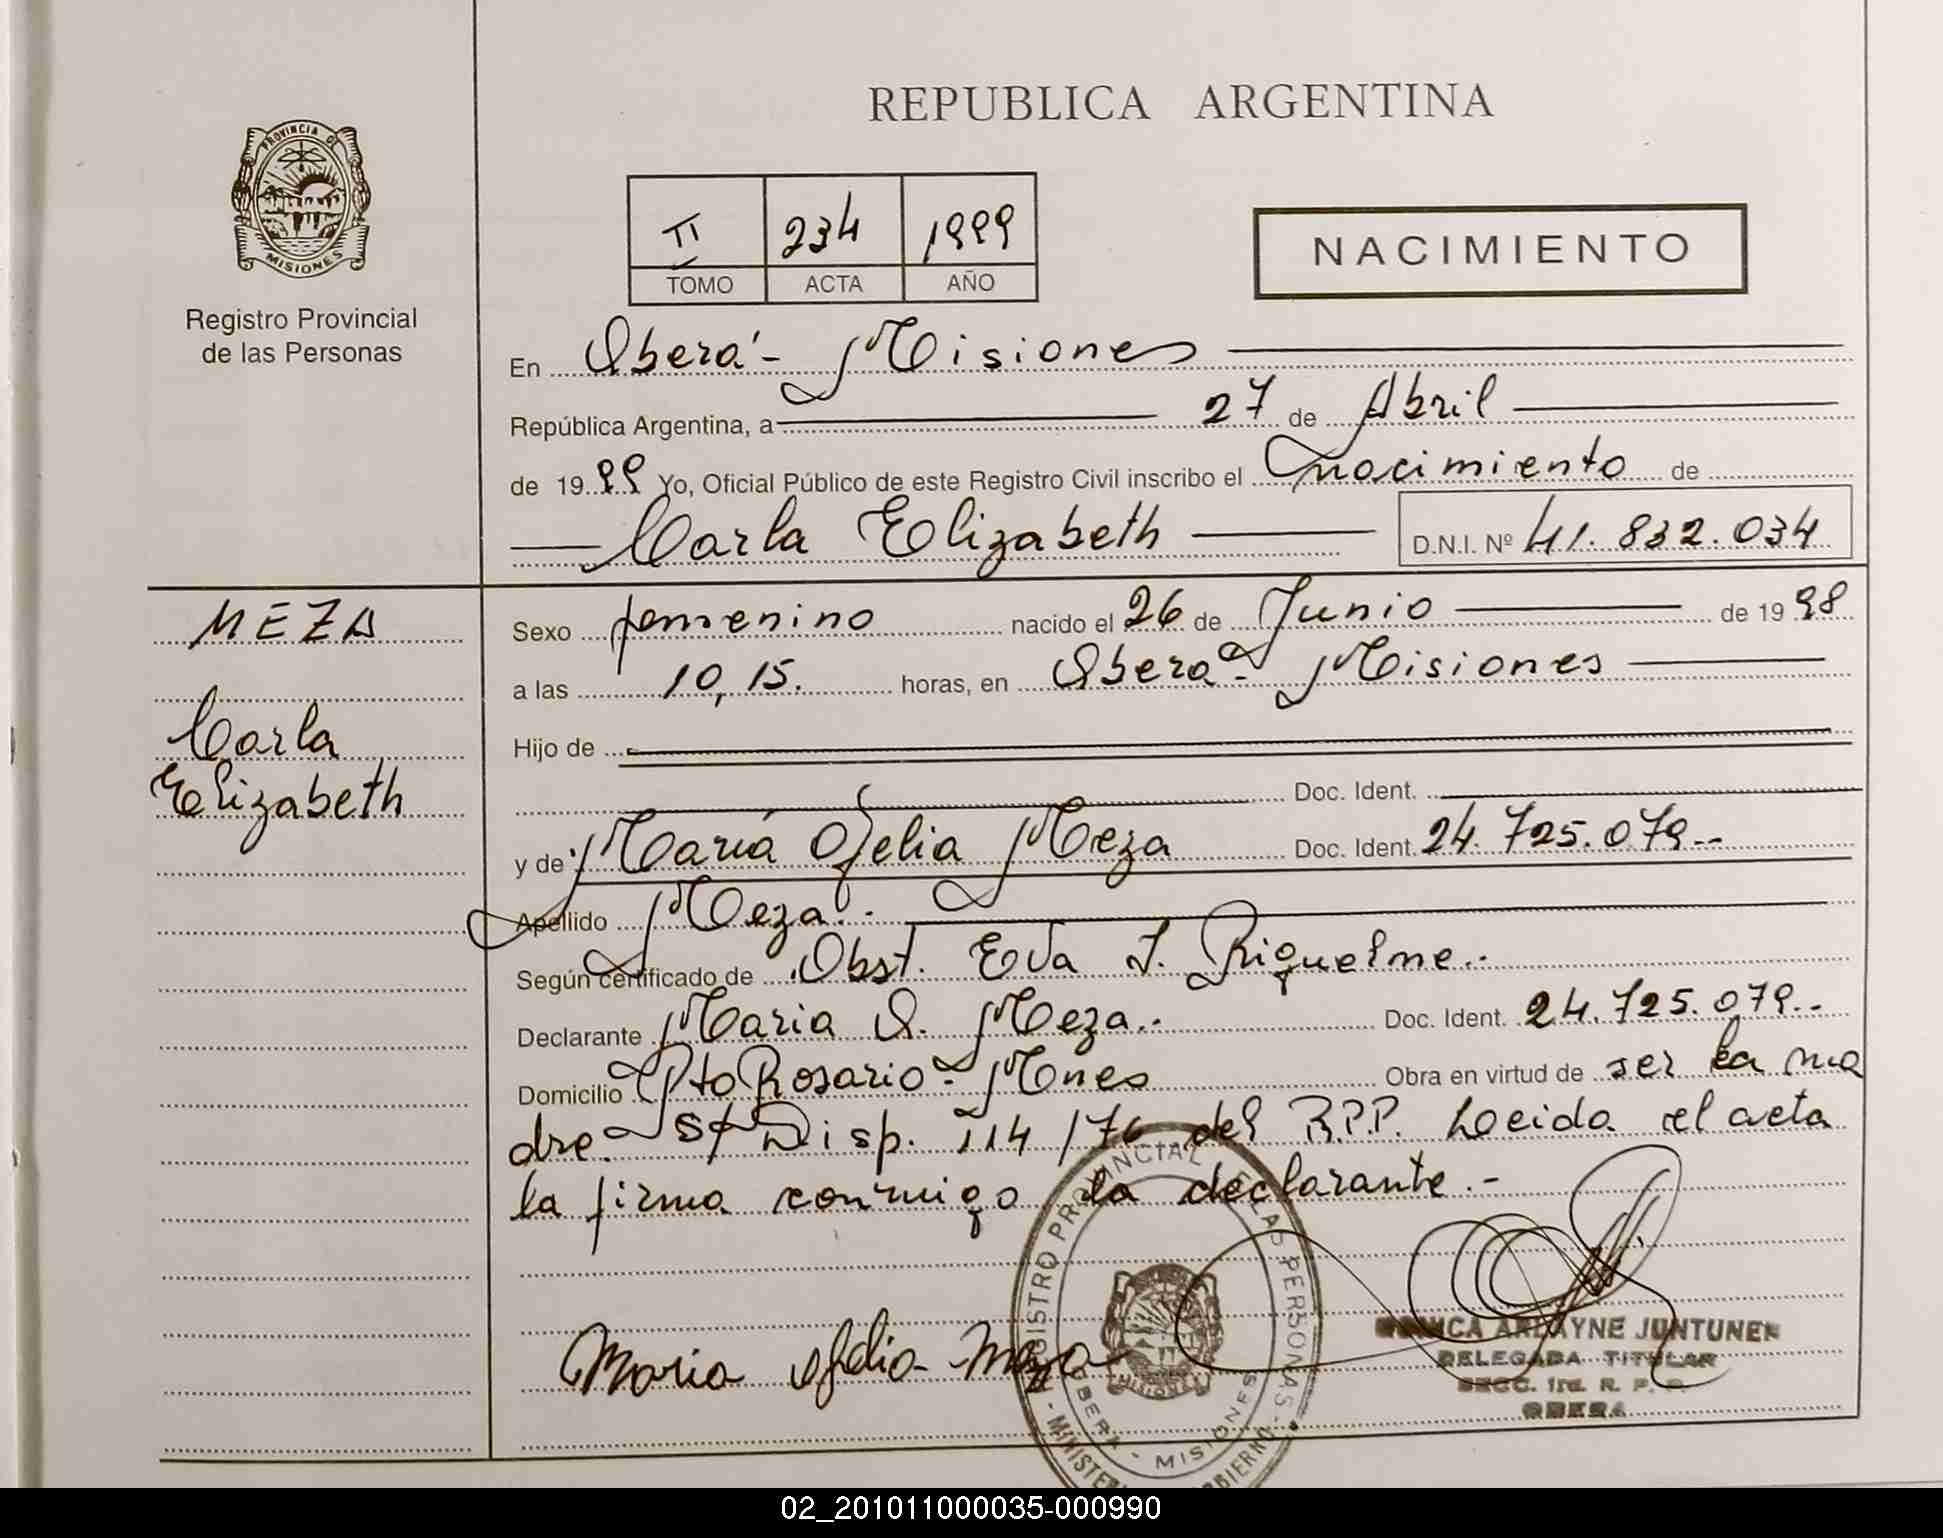 REPUBLICA ARGENTINA
PROVINCIA DE
MISIONES
Registro Provincial
de las Personas
II 234 1999
TOMO ACTA AÑO
NACIMIENTO
En Oberá - Misiones
República Argentina, a 27 de Abril
de 1999 Yo, Oficial Público de este Registro Civil inscribo el nacimiento de
Carla Elizabeth D.N.I. Nº 41.832.034
MEZA
Carla
Elizabeth
Sexo femenino nacido el 26 de Junio de 1998
a las 10,15. horas, en Oberá - Misiones
Hijo de
Doc. Ident.
y de María Ofelia Meza Doc. Ident. 24.725.079.--
Apellido Meza.-
Según certificado de Obst. Eva J. Riquelme.-
Declarante Maria O. Meza.- Doc. Ident. 24.725.079.--
Domicilio Pto Rosario - Mnes Obra en virtud de ser la ma
dre. S/ Disp. 114/76 del R.P.P. Leida el acta
la firma conmigo la declarante.-
Maria Ofelia Meza
REGISTRO PROVINCIAL DE LAS PERSONAS
MISIONES
OBERA - MISIONES
ARLAYNE JUNTUNEN
DELEGADA TITULAR
SECC. 1ra. R. P.
OBERA
02_201011000035-000990